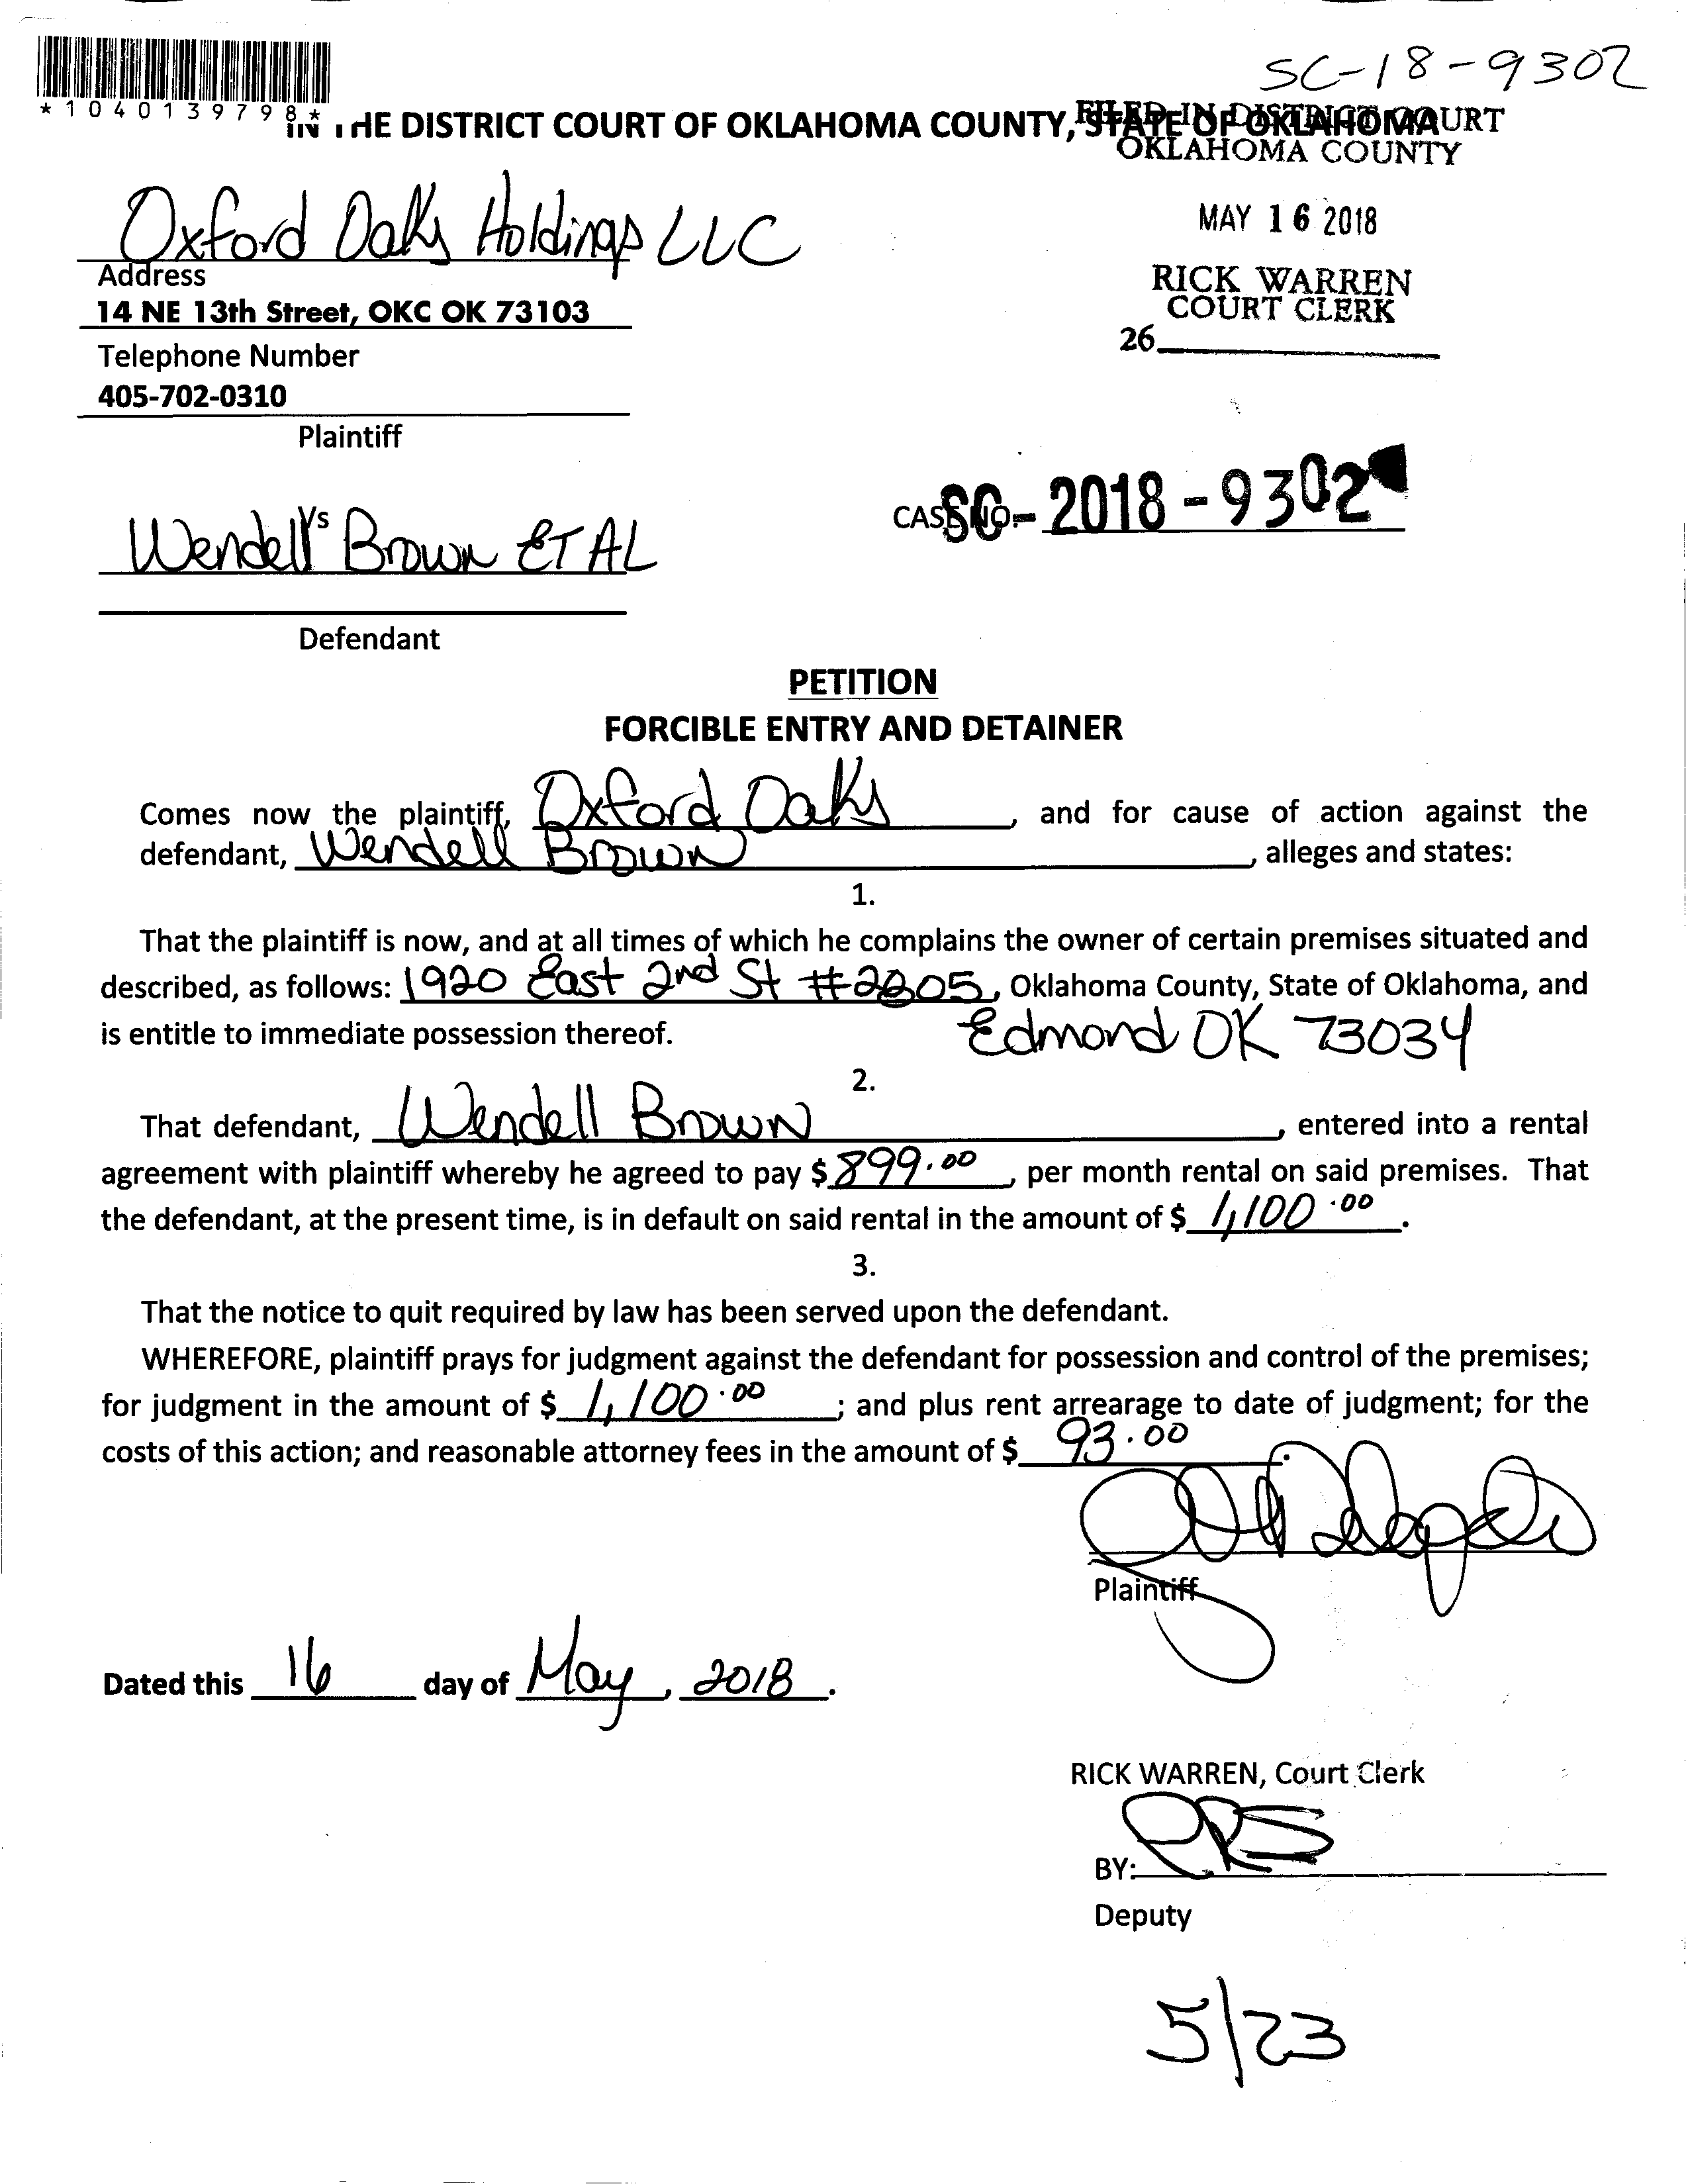 SC-18-9302
*1040139798*
IN THE DISTRICT COURT OF OKLAHOMA COUNTY, STATE OF OKLAHOMA
FILED IN DISTRICT COURT
OKLAHOMA COUNTY
Oxford Oaks Holdings LLC
MAY 16 2018
Address
RICK WARREN
14 NE 13th Street, OKC OK 73103
COURT CLERK
26
Telephone Number
405-702-0310
Plaintiff
CASE NO. SC-2018-9302
Vs
Wendell Brown ET AL
Defendant
PETITION
FORCIBLE ENTRY AND DETAINER
Comes now the plaintiff, Oxford Oaks, and for cause of action against the
defendant, Wendell Brown, alleges and states:
1.
That the plaintiff is now, and at all times of which he complains the owner of certain premises situated and
described, as follows: 1920 East 2nd St #2205, Oklahoma County, State of Oklahoma, and
is entitle to immediate possession thereof. Edmond OK 73034
2.
That defendant, Wendell Brown, entered into a rental
agreement with plaintiff whereby he agreed to pay $ 899.00, per month rental on said premises. That
the defendant, at the present time, is in default on said rental in the amount of $ 1,100.00.
3.
That the notice to quit required by law has been served upon the defendant.
WHEREFORE, plaintiff prays for judgment against the defendant for possession and control of the premises;
for judgment in the amount of $ 1,100.00; and plus rent arrearage to date of judgment; for the
costs of this action; and reasonable attorney fees in the amount of $ 93.00.
Plaintiff
Dated this 16 day of May, 2018.
RICK WARREN, Court Clerk
BY:
Deputy
5/23